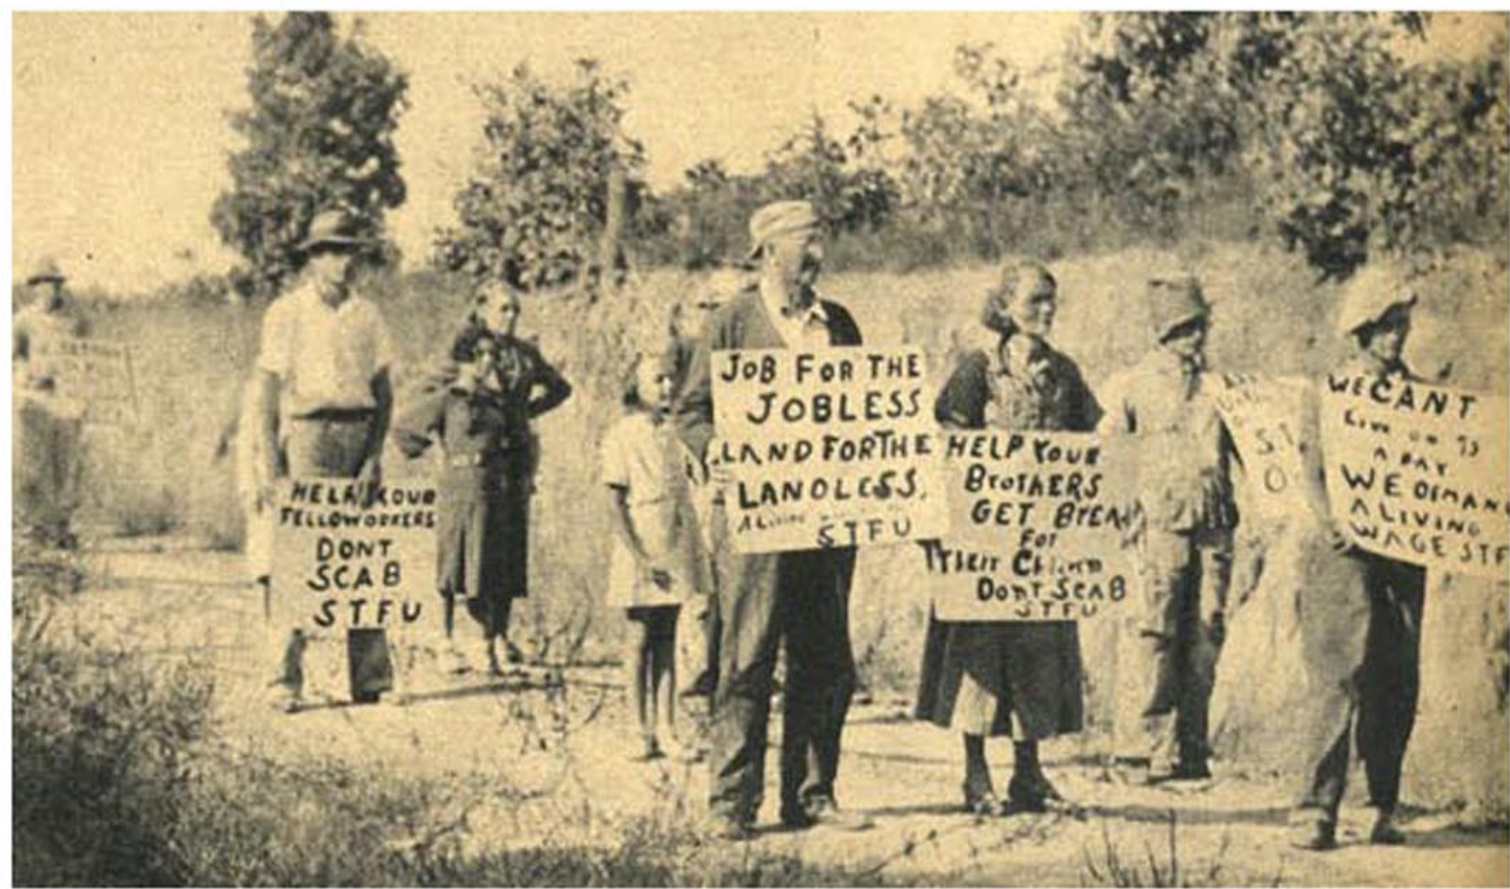 HELP YOUR
FELLOWORKERS
DONT
SCAB
STFU
JOB FOR THE
JOBLESS
LAND FOR THE
LANDLESS.
A Living
STFU
HELP YOUR
BroTHERS
GET BrEA
For
THeir
Dont SCAB
STFU
WE CANT
Live on
A DAY
WE DEMAN
A LIVING
WAGE STF